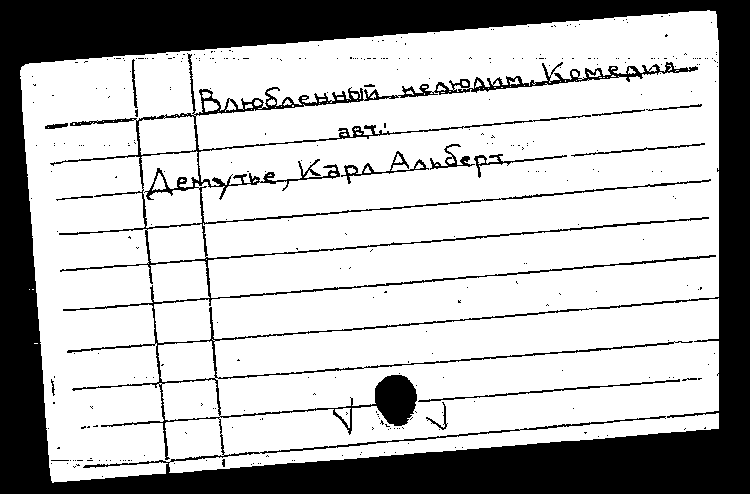 Влюбленный нелюдим. Комедия
авт.:
Демутье, Карл Альберт.